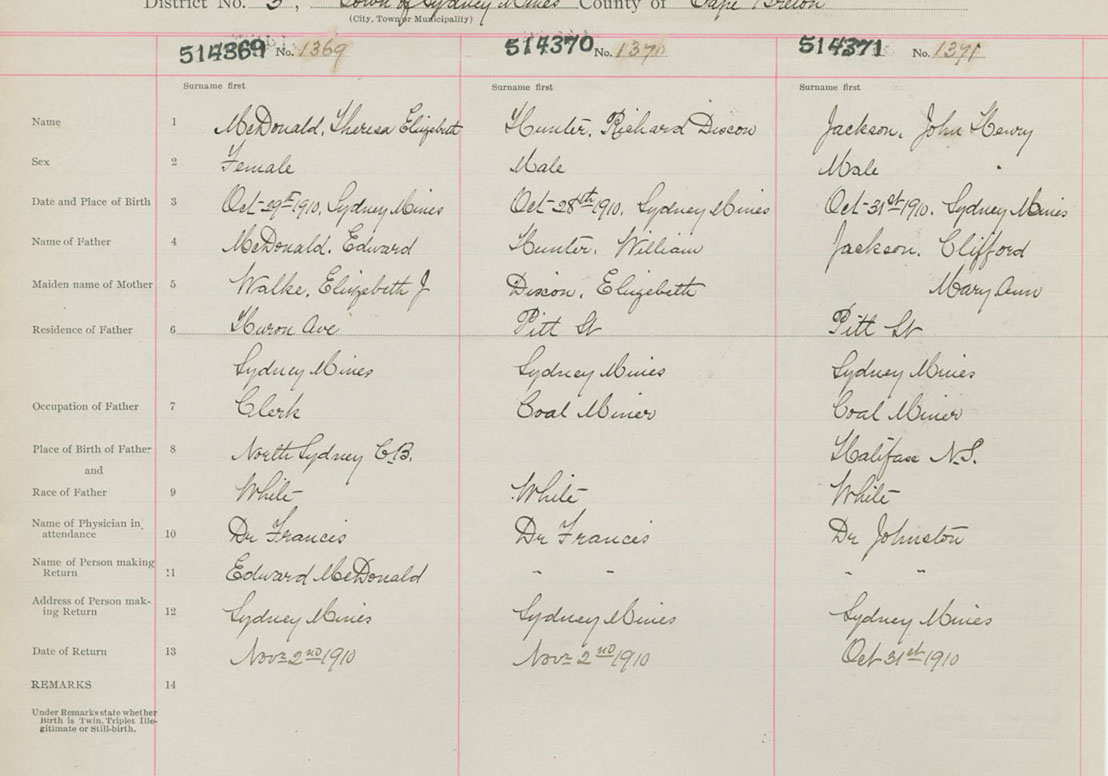 District No. 3, Town of Sydney Mines County of Cape Breton
(City, Town or Municipality)
514369 No. 1369 514370 No. 1370 514371 No. 1371
Surname first Surname first Surname first
Name 1 McDonald, Theresa Elizabeth Hunter, Richard Dixon Jackson, John Henry
Sex 2 Female Male Male
Date and Place of Birth 3 Oct 1910, Sydney Mines Oct 28th 1910, Sydney Mines Oct 31st 1910. Sydney Mines
Name of Father 4 McDonald, Edward Hunter, William Jackson, Clifford
Maiden name of Mother 5 Walke, Elizebeth J Dixon, Elizebeth Mary Ann
Residence of Father 6 Huron Ave Pitt St Pitt St
Sydney Mines Sydney Mines Sydney Mines
Occupation of Father 7 Clerk Coal Miner Coal Miner
Place of Birth of Father 8 North Sydney C.B. Halifax N.S.
and
Race of Father 9 White White White
Name of Physician in
attendance 10 Dr Francis Dr Francis Dr Johnston
Name of Person making
Return 11 Edward McDonald " " " "
Address of Person mak-
ing Return 12 Sydney Mines Sydney Mines Sydney Mines
Date of Return 13 Nov 2nd 1910 Nov 2nd 1910 Oct 31st 1910
REMARKS 14
Under Remarks state whether
Birth is Twin, Triplet Ille-
gitimate or Still-birth.